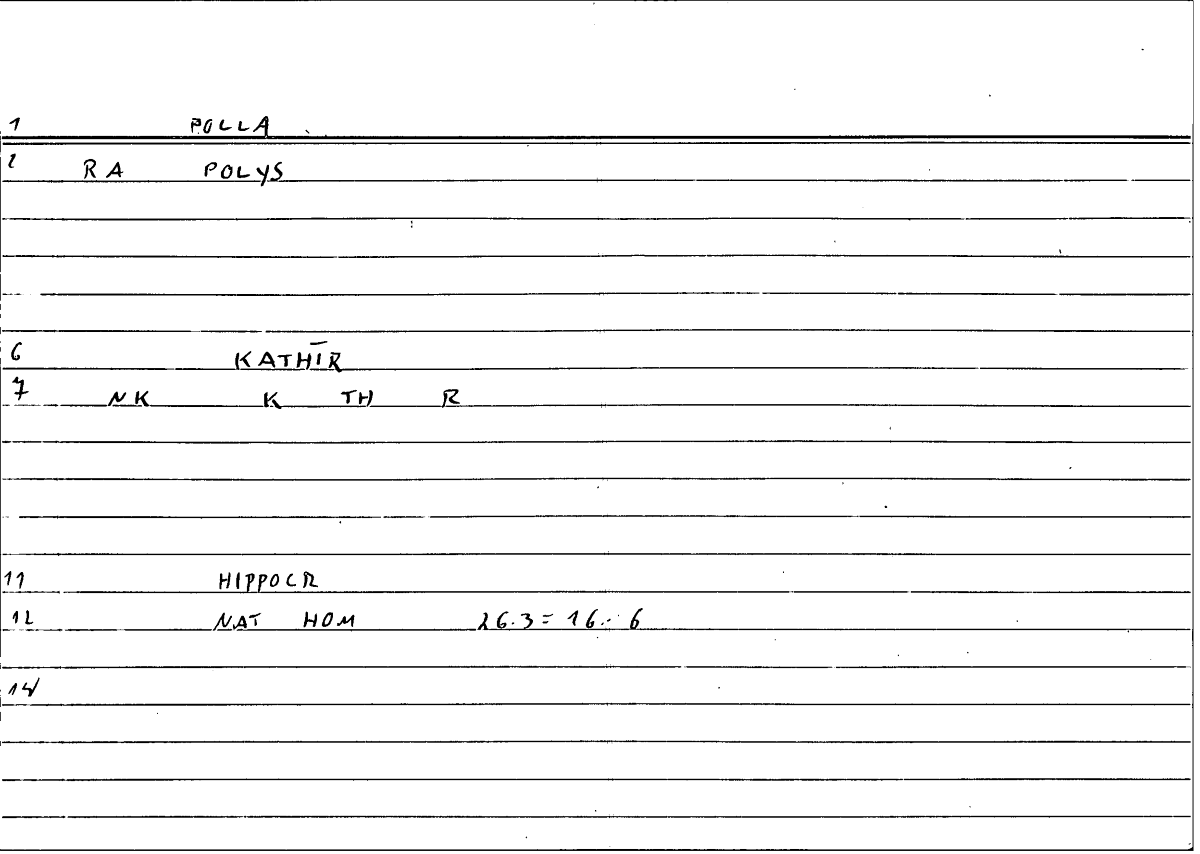 1 POLLA
2 RA POLYS
6 KATHĪR
7 NK K TH R
11 HIPPOCR
12 NAT HOM 26.3 = 16.. 6
14